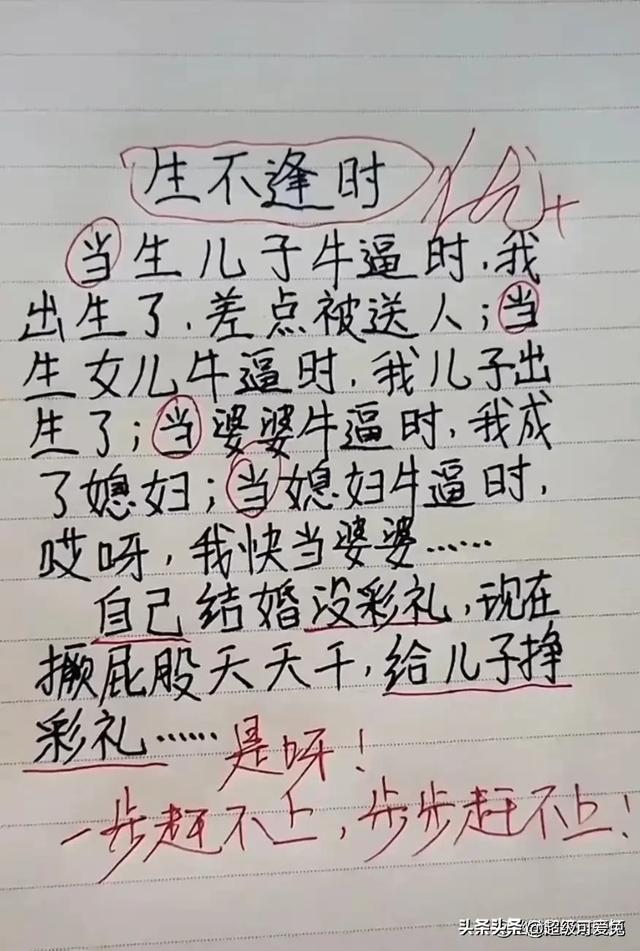 生不逢时 优+
当生儿子牛逼时,我
出生了,差点被送人;当
生女儿牛逼时,我儿子出
生了;当婆婆牛逼时,我成
了媳妇;当媳妇牛逼时,
哎呀,我快当婆婆……
自己结婚没彩礼,现在
撅屁股天天干,给儿子挣
彩礼……是呀!
一步赶不上,步步赶不上!
头条 @超级可爱兔